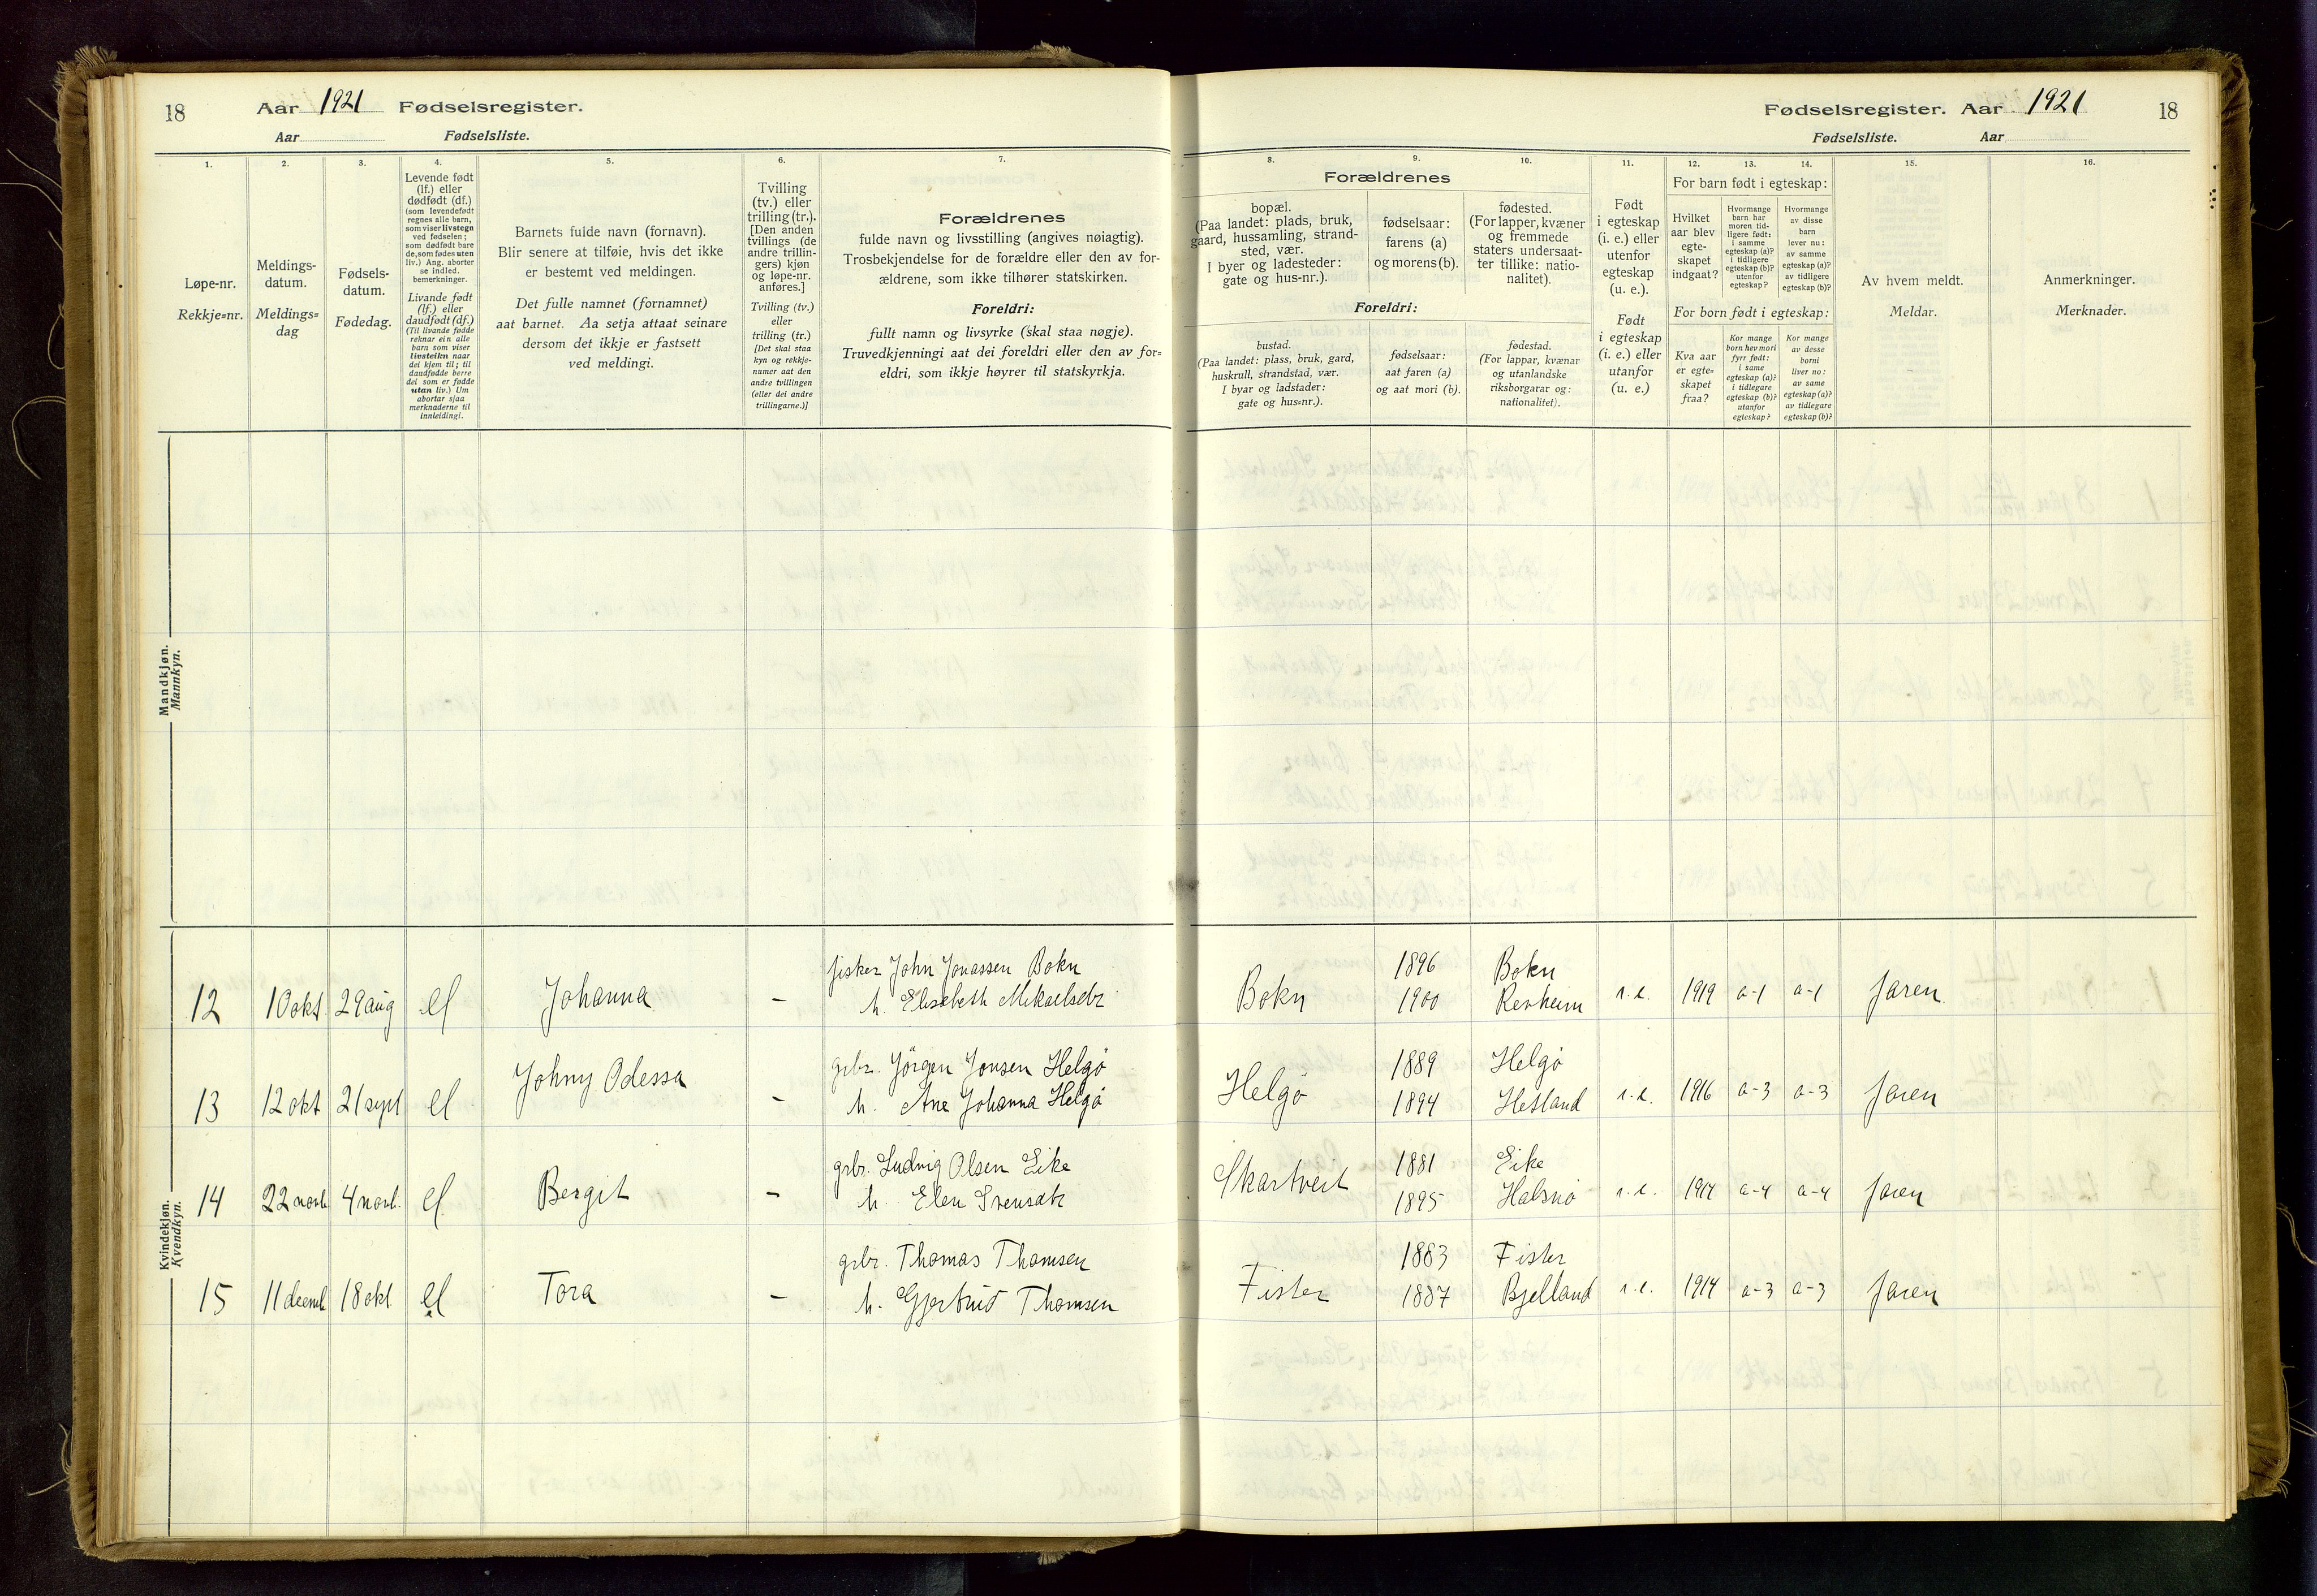 18 Aar 1921 Fødselsregister.
Aar Fødselsliste.
Fødselsregister. Aar 1921 18
Fødselsliste. Aar
1.
Løpe-nr.
Rekkje=nr.
2.
Meldings-
datum.
Meldings=
dag
3.
Fødsels-
datum.
Fødedag.
4.
Levende født
(lf.) eller
dødfødt (df.)
(som levendefødt
regnes alle barn,
som viser livstegn
ved fødselen;
som dødfødt bare
de, som fødes uten
liv.) Ang. aborter
se indled.
bemerkninger.
Livande født
(lf.) eller
daudfødt (df.)
(Til livande fødde
reknar ein alle
barn som viser
livsteikn naar
dei kjem til; til
daudfødde berre
dei som er fødde
utan liv.) Um
abortar sjaa
merknaderne til
innleidingi.
5.
Barnets fulde navn (fornavn).
Blir senere at tilføie, hvis det ikke
er bestemt ved meldingen.
Det fulle namnet (fornamnet)
aat barnet. Aa setja attaat seinare
dersom det ikkje er fastsett
ved meldingi.
6.
Tvilling
(tv.) eller
trilling (tr.).
[Den anden
tvillings (de
andre trillin-
gers) kjøn
og løpe-nr.
anføres.]
Tvilling (tv.)
eller
trilling (tr.)
[Det skal staa
kyn og rekkje-
numer aat den
andre tvillingen
(eller dei andre
trillingarne.)]
7.
Forældrenes
fulde navn og livsstilling (angives nøiagtig).
Trosbekjendelse for de forældre eller den av for-
ældrene, som ikke tilhører statskirken.
Foreldri:
fullt namn og livsyrke (skal staa nøgje).
Truvedkjenningi aat dei foreldri eller den av for=
eldri, som ikkje høyrer til statskyrkja.
Forældrenes
8.
bopæl.
(Paa landet: plads, bruk,
gaard, hussamling, strand-
sted, vær.
I byer og ladesteder:
gate og hus-nr.).
9.
fødselsaar:
farens (a)
og morens (b).
10.
fødested.
(For lapper, kvæner
og fremmede
staters undersaat-
ter tillike: natio-
nalitet).
Foreldri:
bustad.
(Paa landet: plass, bruk, gard,
huskrull, strandstad, vær.
I byar og ladstader:
gate og hus=nr.).
fødselsaar:
aat faren (a)
og aat mori (b).
fødestad.
(For lappar, kvænar
og utanlandske
riksborgarar og:
nationalitet).
11.
Født
i egteskap
(i. e.) eller
utenfor
egteskap
(u. e.).
Født
i egteskap
(i. e.) eller
utanfor
(u. e.)
For barn født i egteskap:
12.
Hvilket
aar blev
egte-
skapet
indgaat?
13.
Hvormange
barn har
moren tid-
ligere født:
i samme
egteskap (a)?
i tidligere
egteskap (b)?
utenfor
egteskap?
14.
Hvormange
av disse
barn
lever nu:
av samme
egteskap (a)?
av tidligere
egteskap (b)?
For born født i egteskap:
Kva aar
er egte=
skapet
fraa?
Kor mange
born hev mori
fyrr født:
i same
egteskap (a)?
i tidlegare
egteskap (b)?
utanfor
egteskap?
Kor mange
av desse
borni
liver no:
av same
egteskap (a)?
av tidlegare
egteskap (b)?
15.
Av hvem meldt.
Meldar.
16.
Anmerkninger.
Merknader.
Mandkjøn.
Mannkyn.
Kvindekjøn.
Kvendkyn.
fisker John Jonassen Bokn 1896 Bokn
12 10 okt 29 aug lf Johanna - h. Elisebeth Mikaelsdtr Bokn 1900 Revheim i.e. 1919 a-1 a-1 faren
grbr. Jörgen Jonsen Helgö 1889 Helgö
13 12 okt 21 sept lf Johny Odessa - h. Ane Johanna Helgö Helgö 1894 Hetland i.e. 1916 a-3 a-3 faren
grbr. Ludvig Olsen Eike 1881 Eike
14 22 novb 4 novb. lf Bergit - h. Elen Svensdtr Skartveit 1895 Halsnö i.e. 1914 a-4 a-4 faren
grbr. Thomas Thomsen 1883 Fister
15 11 decemb 18 okt. lf Tora - h. Gjertrud Thomsen Fister 1887 Bjelland i.e. 1914 a-3 a-3 faren